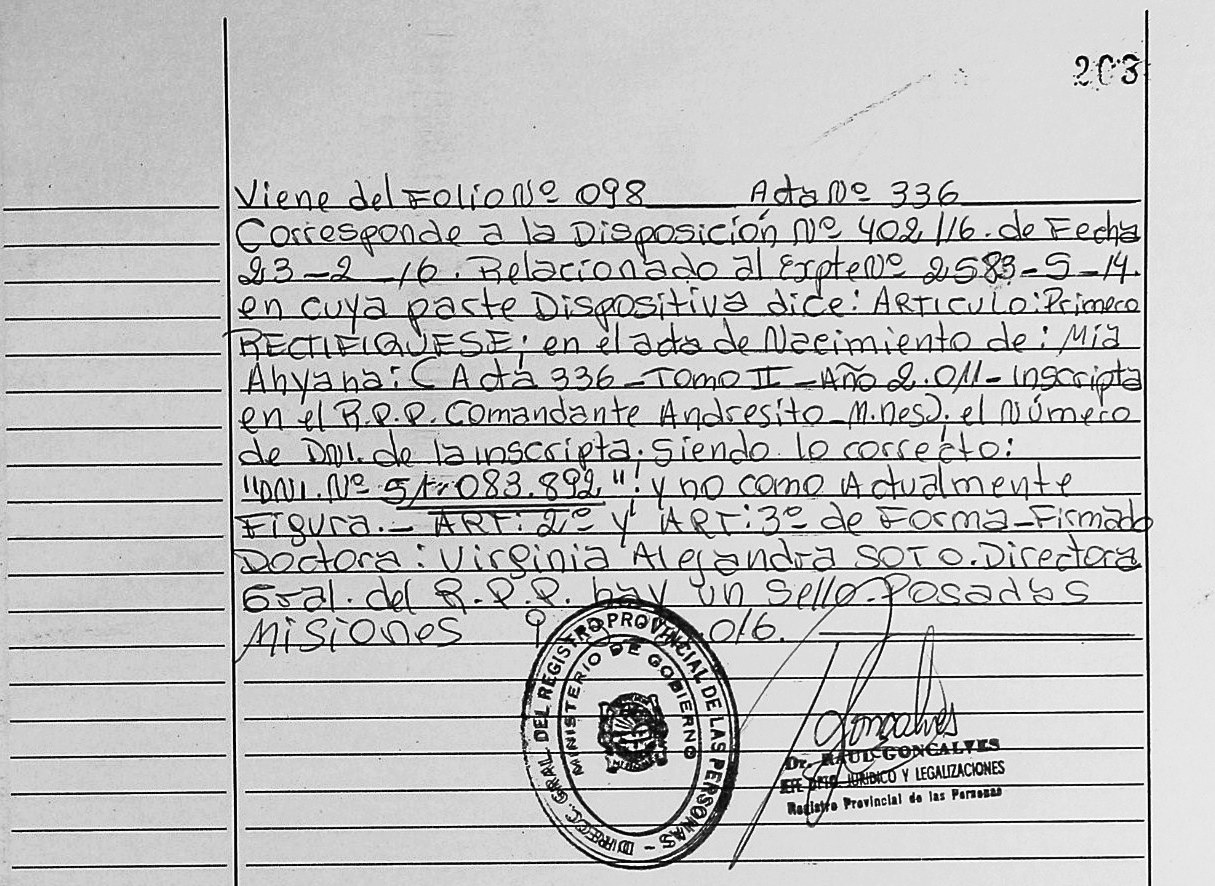 203
Viene del Folio Nº 098 Acta Nº 336
Corresponde a la Disposición Nº 402/16. de Fecha
23-2-16. Relacionado al Expte Nº 2583-S-14.
en cuya parte Dispositiva dice: ARTICULO: Primero
RECTIFIQUESE; en el acta de Nacimiento de: Mia
Ahyana: (Acta 336-Tomo II-Año 2.011-Inscripta
en el R.P.P. Comandante Andresito-M.nes). el Número
de DNI. de la inscripta. Siendo lo correcto:
"DNI. Nº 51.083.892." y no como Actualmente
Figura.- ART: 2º y ART: 3º de Forma-Firmado
Doctora: Virginia Alejandra SOTO. Directora
Gral. del R.P.P. hay un Sello. Posadas
Misiones 016.
DIRECC. GRAL. DEL REGISTRO PROVINCIAL DE LAS PERSONAS -
MINISTERIO DE GOBIERNO
Goncalves
Dr. RAUL GONCALVES
JEFE DPTO. JURIDICO Y LEGALIZACIONES
Registro Provincial de las Personas